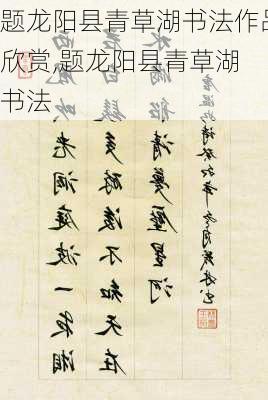 题龙阳县青草湖书法作品
欣赏,题龙阳县青草湖
书法
西風吹老洞庭波一夜湘
君白髮多醉後不知天在
水滿船清夢壓星河
唐温如詩